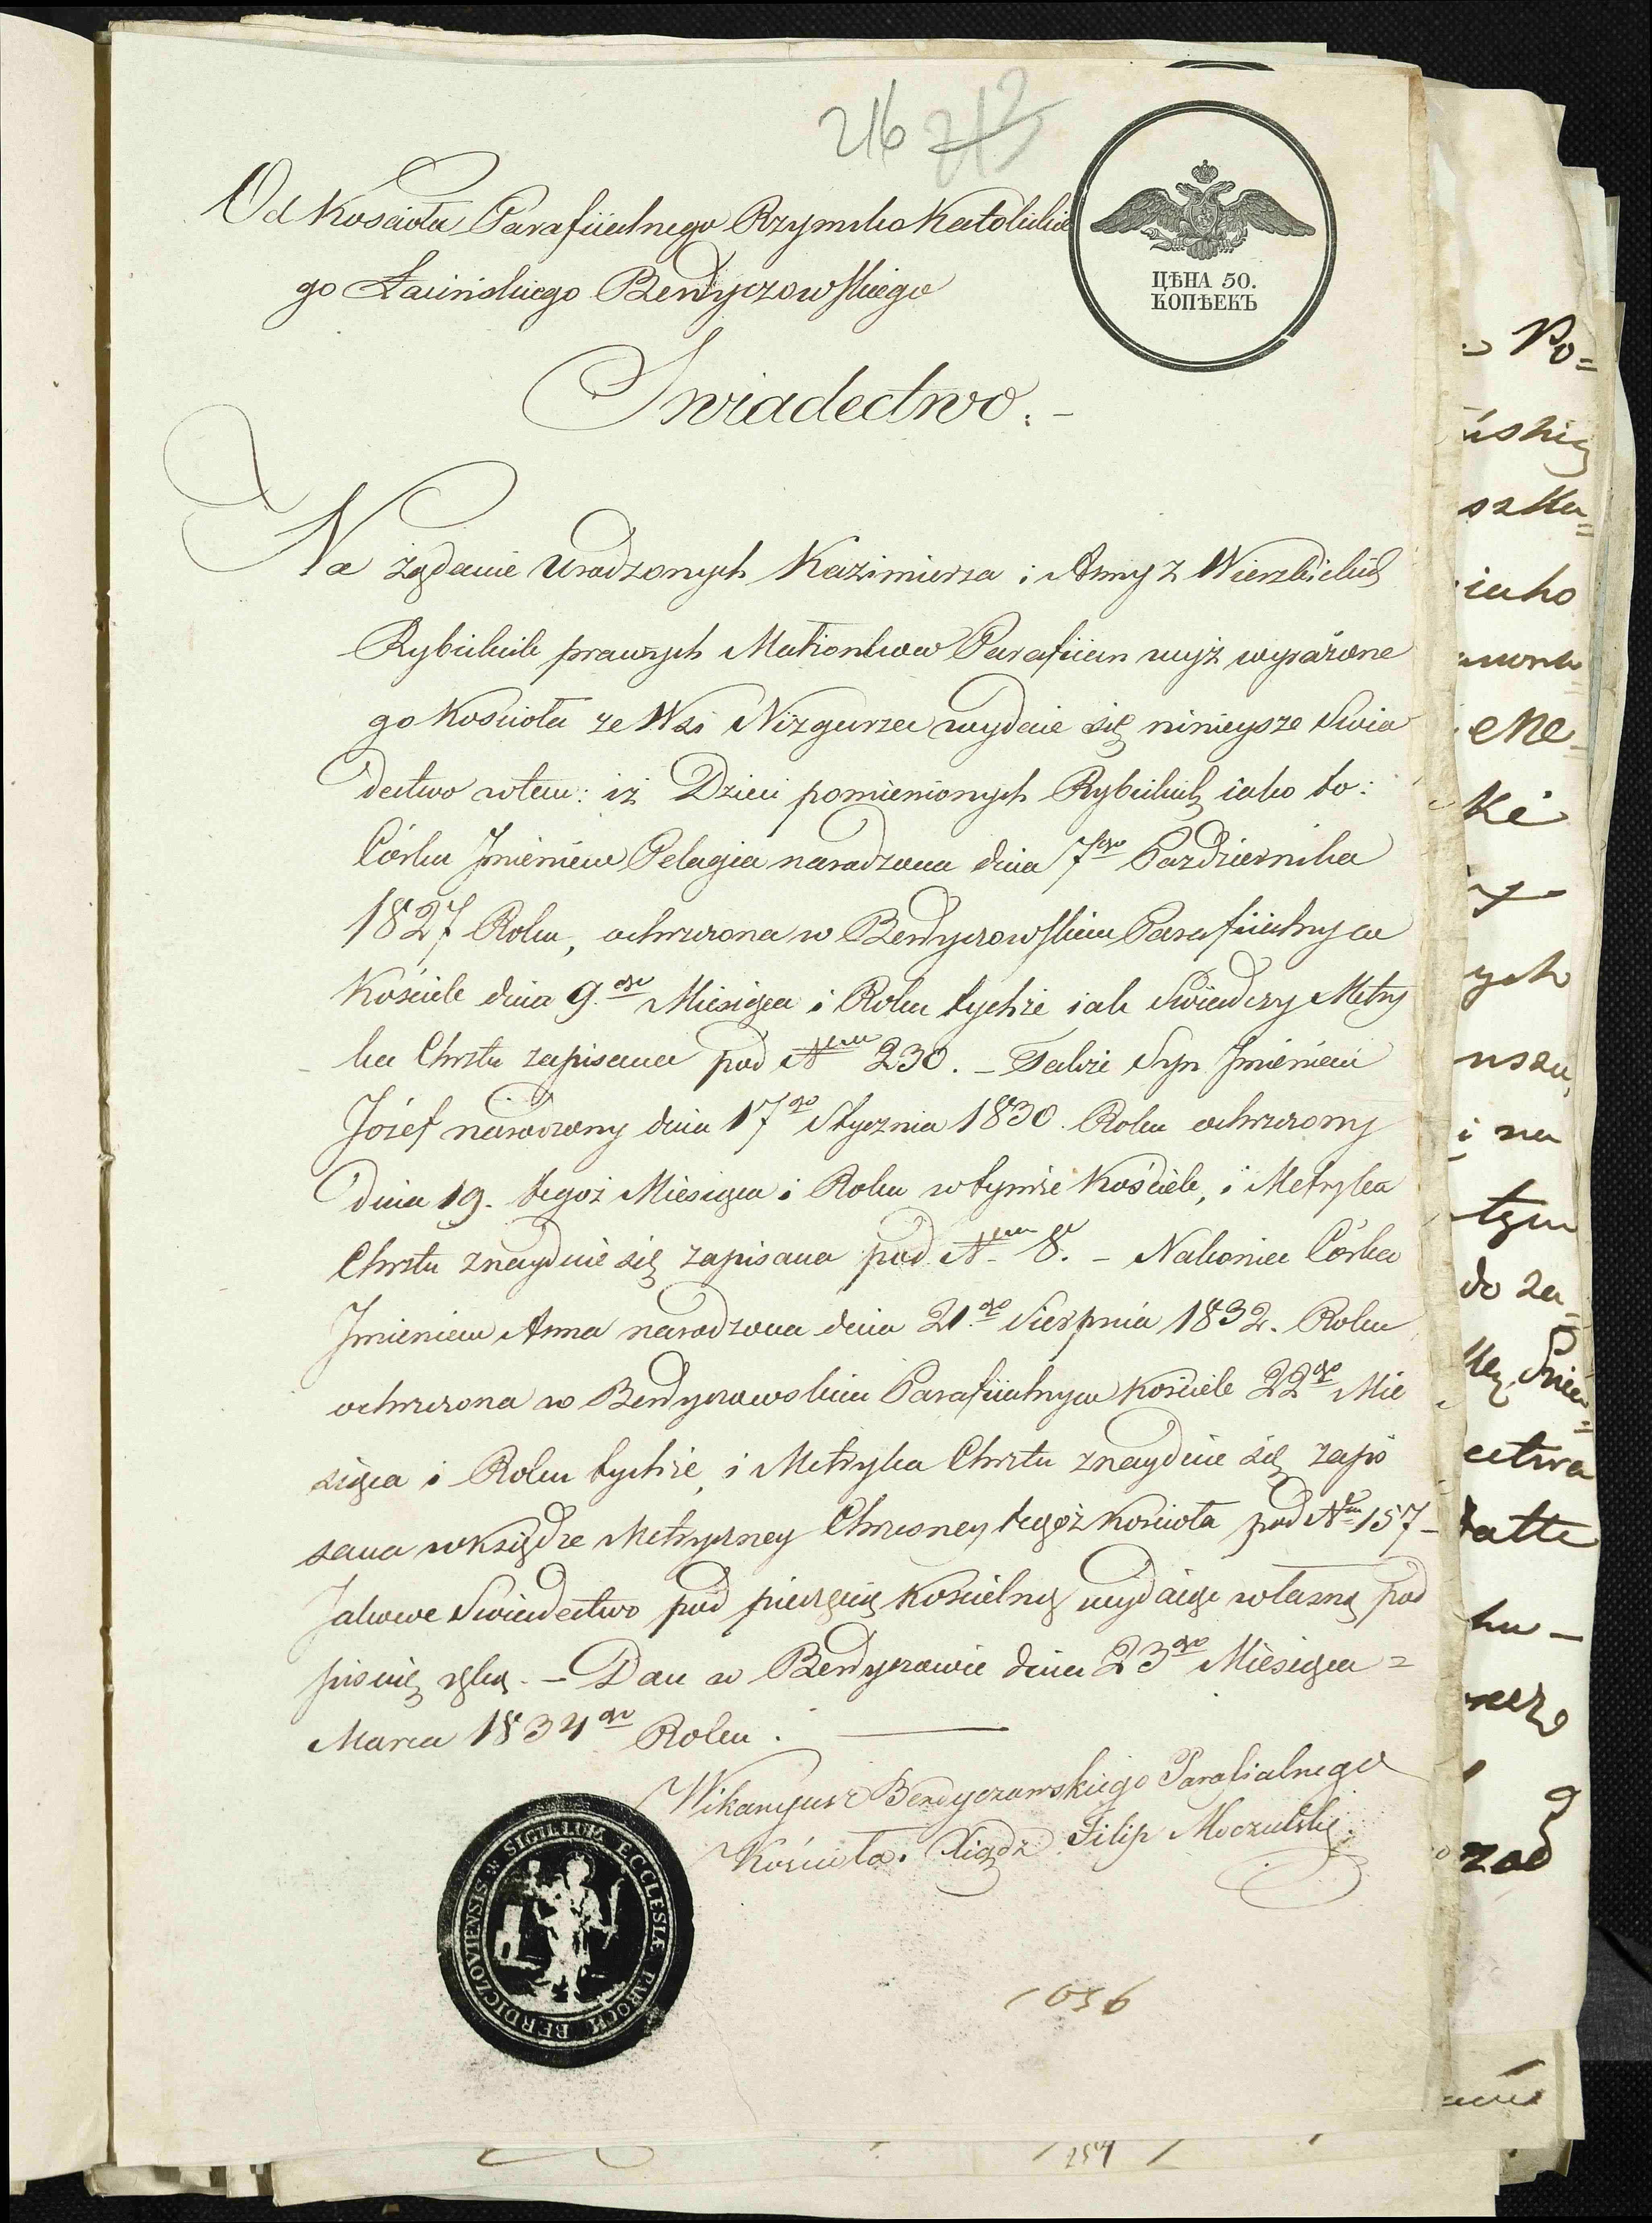 216 213
Od Koscioła Parafiialnego Rzymsko Katolickie
go Łacińskiego Berdyczowskiego
ЦѢНА 50.
КОПѢЕКЪ
Swiadectwo.-
Na żądanie Urodzonych Kazimierza i Anny z Wierzbickich
Rybickich prawych Małżonkow Parafiian wyż wyrażone
go Kościoła ze Wsi Nizgurzec wydaie się ninieysze Swia
dectwo w tem: iż Dzieci pomienionych Rybickich iako to:
Córka Jmieniem Pelagia narodzona dnia 7go Pazdziernika
1827 Roku, ochrzczona w Berdyczowskim Parafiialnym
Kościele dnia 9.go Miesiąca i Roku tychże iak Swiadczy Metry
ka Chrztu zapisana pod Nrem 230. - Także Syn Jmieniem
Józef narodzony dnia 17go Stycznia 1830 Roku ochrzczony
dnia 19. tegoż Miesiąca i Roku w tymże Kościele, i Metryka
Chrztu znayduie się zapisana pod Nrem 8. - Nakoniec Córka
Jmieniem Anna narodzona dnia 21.go Sierpnia 1832. Roku
ochrzczona w Berdyczowskim Parafiialnym Kościele 22go Mie
siąca i Roku tychże, i Metryka Chrztu znayduie się zapi
sana w Księdze Metryczney Chrzesney tegoż Kościoła pod Nrem 157 -
Jakowe Swiadectwo pod pieczęcią Kościelną wydaiąc własną pod
pisuię ręką. - Dan w Berdyczowie dnia 23go Miesiąca =
Marca 1834go Roku.
Wikaryusz Berdyczowskiego Parafialnego
Kościoła. Xiądz Filip Moczulski.
SIGILLUM ECCLESIÆ PAROCH BERDICZOVIENSIS
1036
254
Po=
szka=
iako
ki
ych
i na
tym
do za=
ectwa
zad